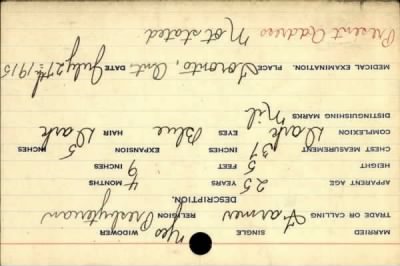 MARRIED SINGLE yes WIDOWER
TRADE OR CALLING Farmer RELIGION Presbyterian
DESCRIPTION.
APPARENT AGE 25 YEARS 4 MONTHS
HEIGHT 5 FEET 9 INCHES
CHEST MEASUREMENT 37 INCHES EXPANSION 5 INCHES
COMPLEXION Dark EYES Blue HAIR Dark
DISTINGUISHING MARKS Nil
MEDICAL EXAMINATION. PLACE Toronto, Ont. DATE July 27th/1915
Present Address Not stated